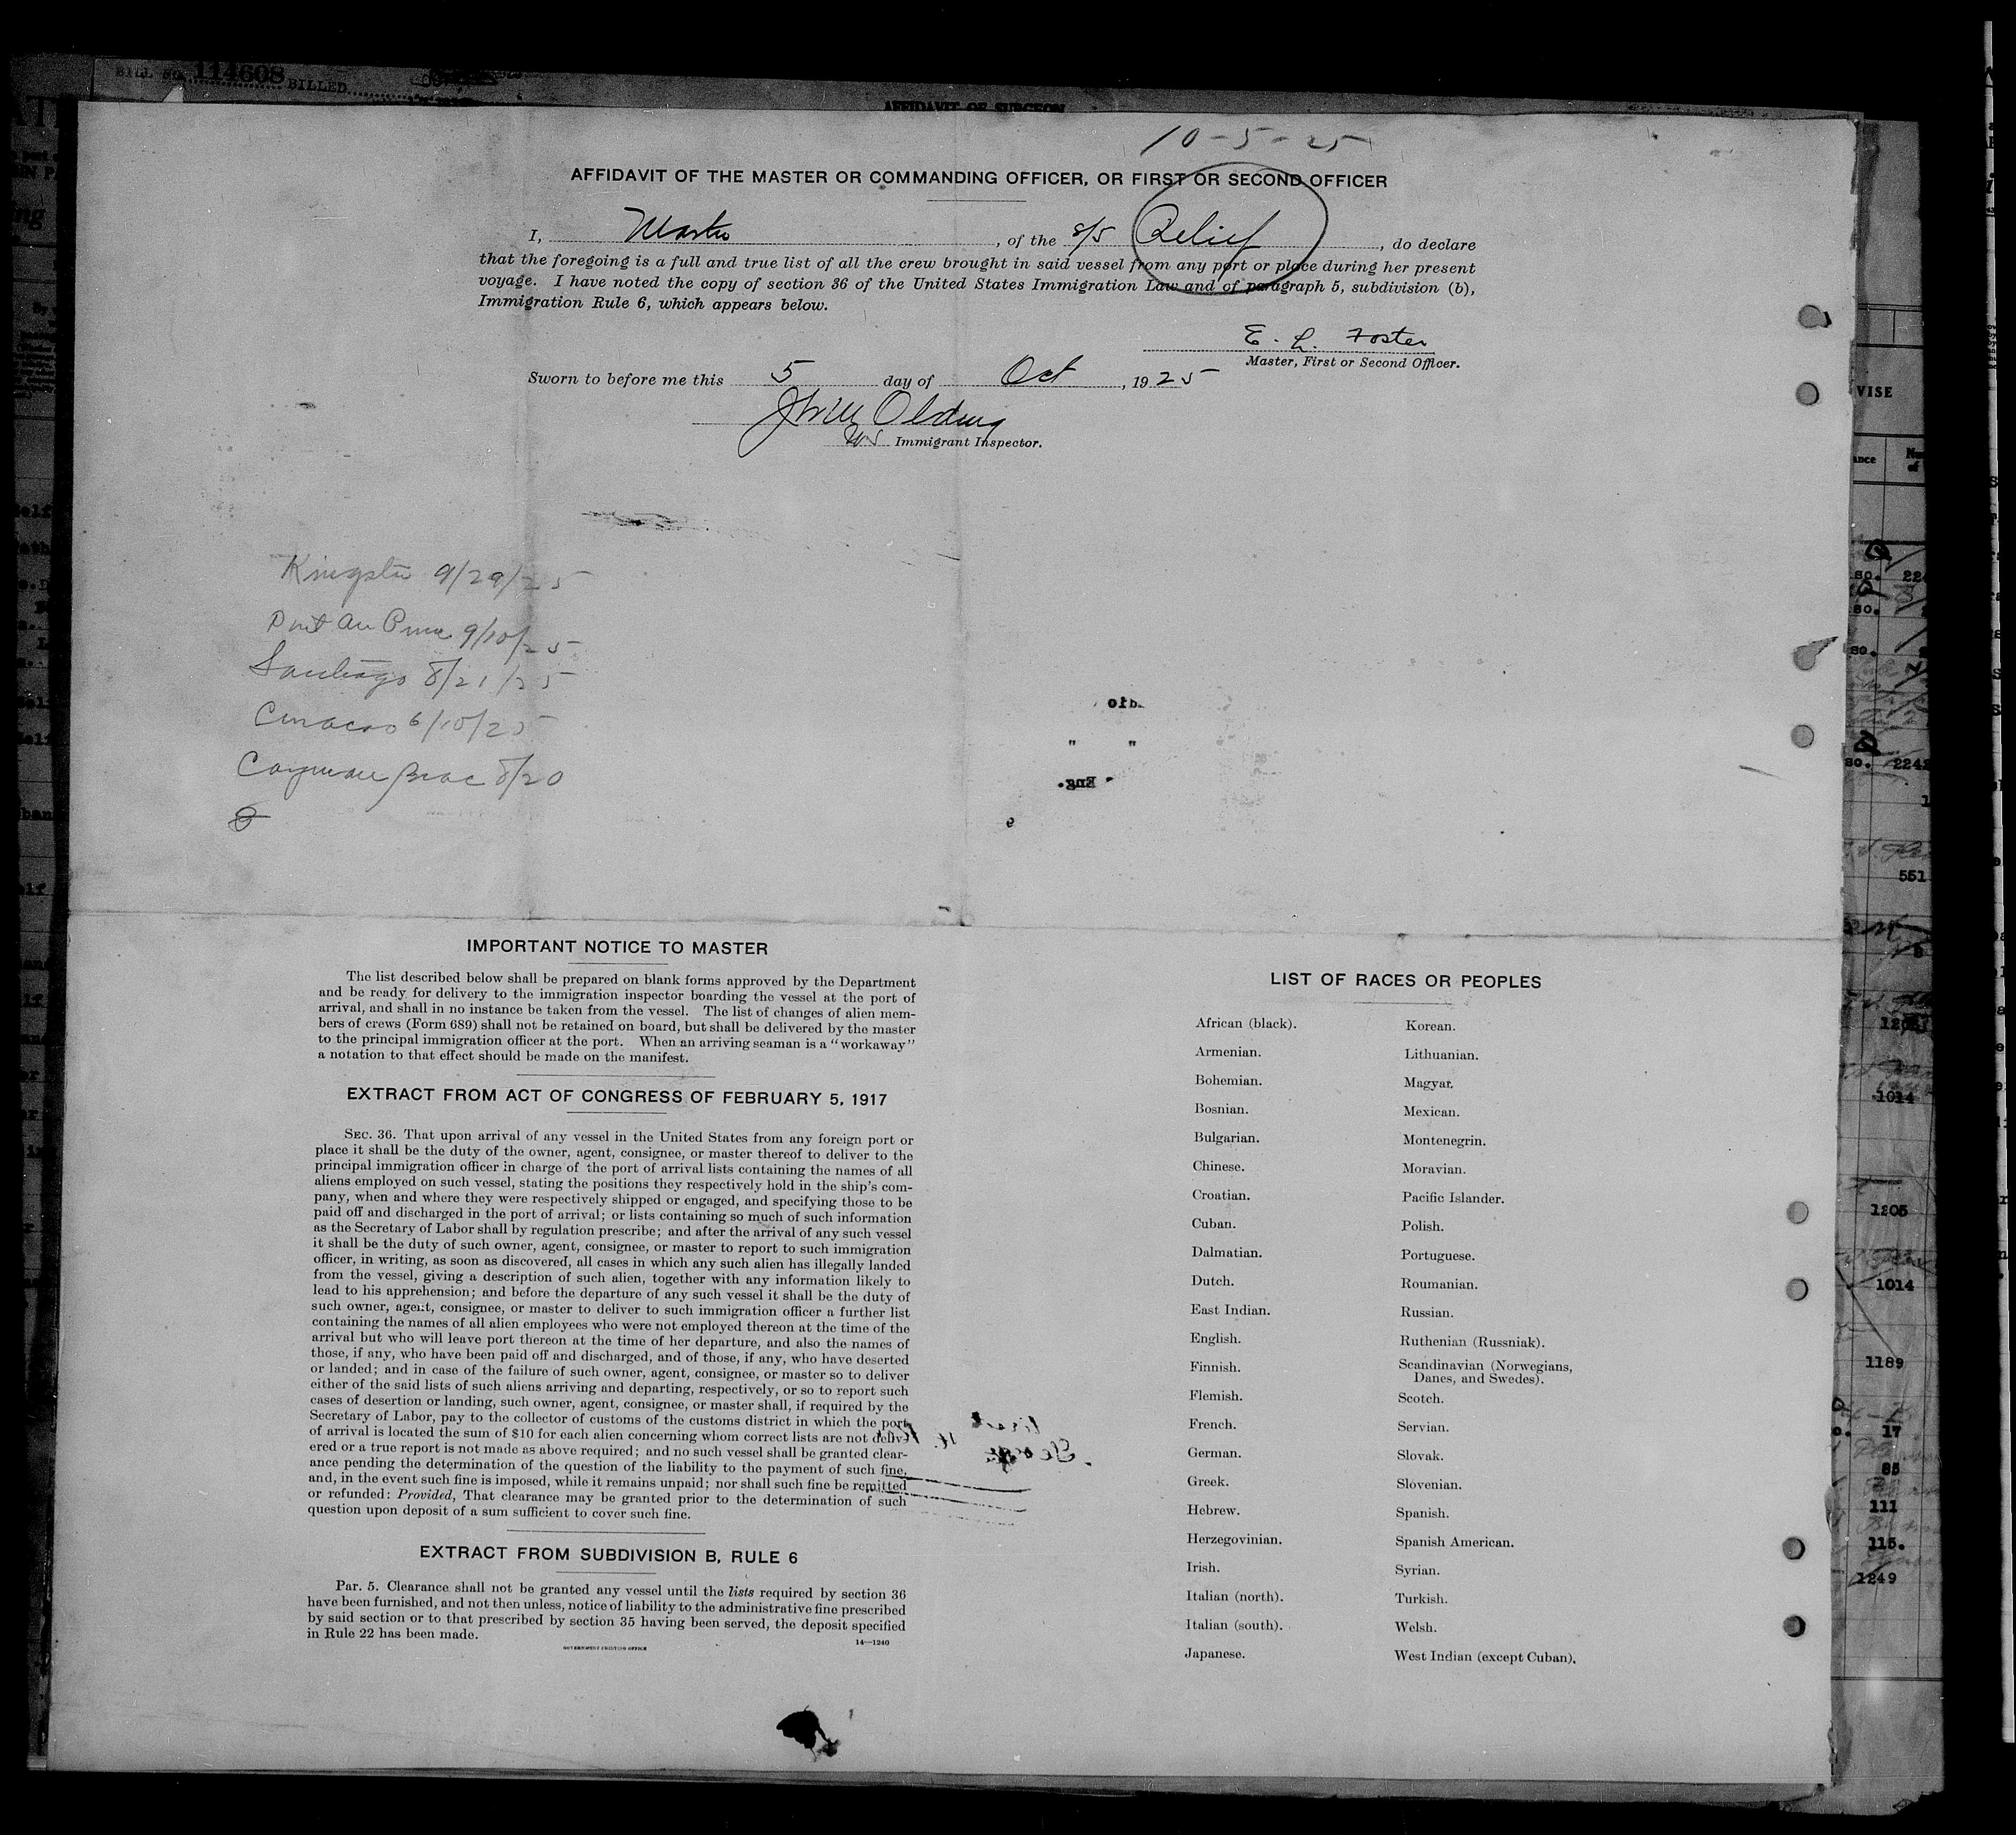 BILL NO. 114608 BILLED
AFFIDAVIT OF SURGEON
10-5-25
AFFIDAVIT OF THE MASTER OR COMMANDING OFFICER, OR FIRST OR SECOND OFFICER
I, Master, of the S/S Relief, do declare
that the foregoing is a full and true list of all the crew brought in said vessel from any port or place during her present
voyage. I have noted the copy of section 36 of the United States Immigration Law and of paragraph 5, subdivision (b),
Immigration Rule 6, which appears below.
E. L. Foster
Master, First or Second Officer.
Sworn to before me this 5 day of Oct, 1925
Olding
US Immigrant Inspector.
Kingston 9/29/25
Port Au Prince 9/10/25
Santiago 8/21/25
Curacao 6/10/25
Cayman Brac 8/20
IMPORTANT NOTICE TO MASTER
The list described below shall be prepared on blank forms approved by the Department
and be ready for delivery to the immigration inspector boarding the vessel at the port of
arrival, and shall in no instance be taken from the vessel. The list of changes of alien mem-
bers of crews (Form 689) shall not be retained on board, but shall be delivered by the master
to the principal immigration officer at the port. When an arriving seaman is a "workaway"
a notation to that effect should be made on the manifest.
EXTRACT FROM ACT OF CONGRESS OF FEBRUARY 5, 1917
SEC. 36. That upon arrival of any vessel in the United States from any foreign port or
place it shall be the duty of the owner, agent, consignee, or master thereof to deliver to the
principal immigration officer in charge of the port of arrival lists containing the names of all
aliens employed on such vessel, stating the positions they respectively hold in the ship's com-
pany, when and where they were respectively shipped or engaged, and specifying those to be
paid off and discharged in the port of arrival; or lists containing so much of such information
as the Secretary of Labor shall by regulation prescribe; and after the arrival of any such vessel
it shall be the duty of such owner, agent, consignee, or master to report to such immigration
officer, in writing, as soon as discovered, all cases in which any such alien has illegally landed
from the vessel, giving a description of such alien, together with any information likely to
lead to his apprehension; and before the departure of any such vessel it shall be the duty of
such owner, agent, consignee, or master to deliver to such immigration officer a further list
containing the names of all alien employees who were not employed thereon at the time of the
arrival but who will leave port thereon at the time of her departure, and also the names of
those, if any, who have been paid off and discharged, and of those, if any, who have deserted
or landed; and in case of the failure of such owner, agent, consignee, or master so to deliver
either of the said lists of such aliens arriving and departing, respectively, or so to report such
cases of desertion or landing, such owner, agent, consignee, or master shall, if required by the
Secretary of Labor, pay to the collector of customs of the customs district in which the port
of arrival is located the sum of $10 for each alien concerning whom correct lists are not deliv-
ered or a true report is not made as above required; and no such vessel shall be granted clear-
ance pending the determination of the question of the liability to the payment of such fine,
and, in the event such fine is imposed, while it remains unpaid; nor shall such fine be remitted
or refunded: Provided, That clearance may be granted prior to the determination of such
question upon deposit of a sum sufficient to cover such fine.
EXTRACT FROM SUBDIVISION B, RULE 6
Par. 5. Clearance shall not be granted any vessel until the lists required by section 36
have been furnished, and not then unless, notice of liability to the administrative fine prescribed
by said section or to that prescribed by section 35 having been served, the deposit specified
in Rule 22 has been made.
GOVERNMENT PRINTING OFFICE
14—1240
LIST OF RACES OR PEOPLES
African (black).
Armenian.
Bohemian.
Bosnian.
Bulgarian.
Chinese.
Croatian.
Cuban.
Dalmatian.
Dutch.
East Indian.
English.
Finnish.
Flemish.
French.
German.
Greek.
Hebrew.
Herzegovinian.
Irish.
Italian (north).
Italian (south).
Japanese.
Korean.
Lithuanian.
Magyar.
Mexican.
Montenegrin.
Moravian.
Pacific Islander.
Polish.
Portuguese.
Roumanian.
Russian.
Ruthenian (Russniak).
Scandinavian (Norwegians,
Danes, and Swedes).
Scotch.
Servian.
Slovak.
Slovenian.
Spanish.
Spanish American.
Syrian.
Turkish.
Welsh.
West Indian (except Cuban).
VISE
551
1014
1205
1014
1189
17
85
111
115.
1249